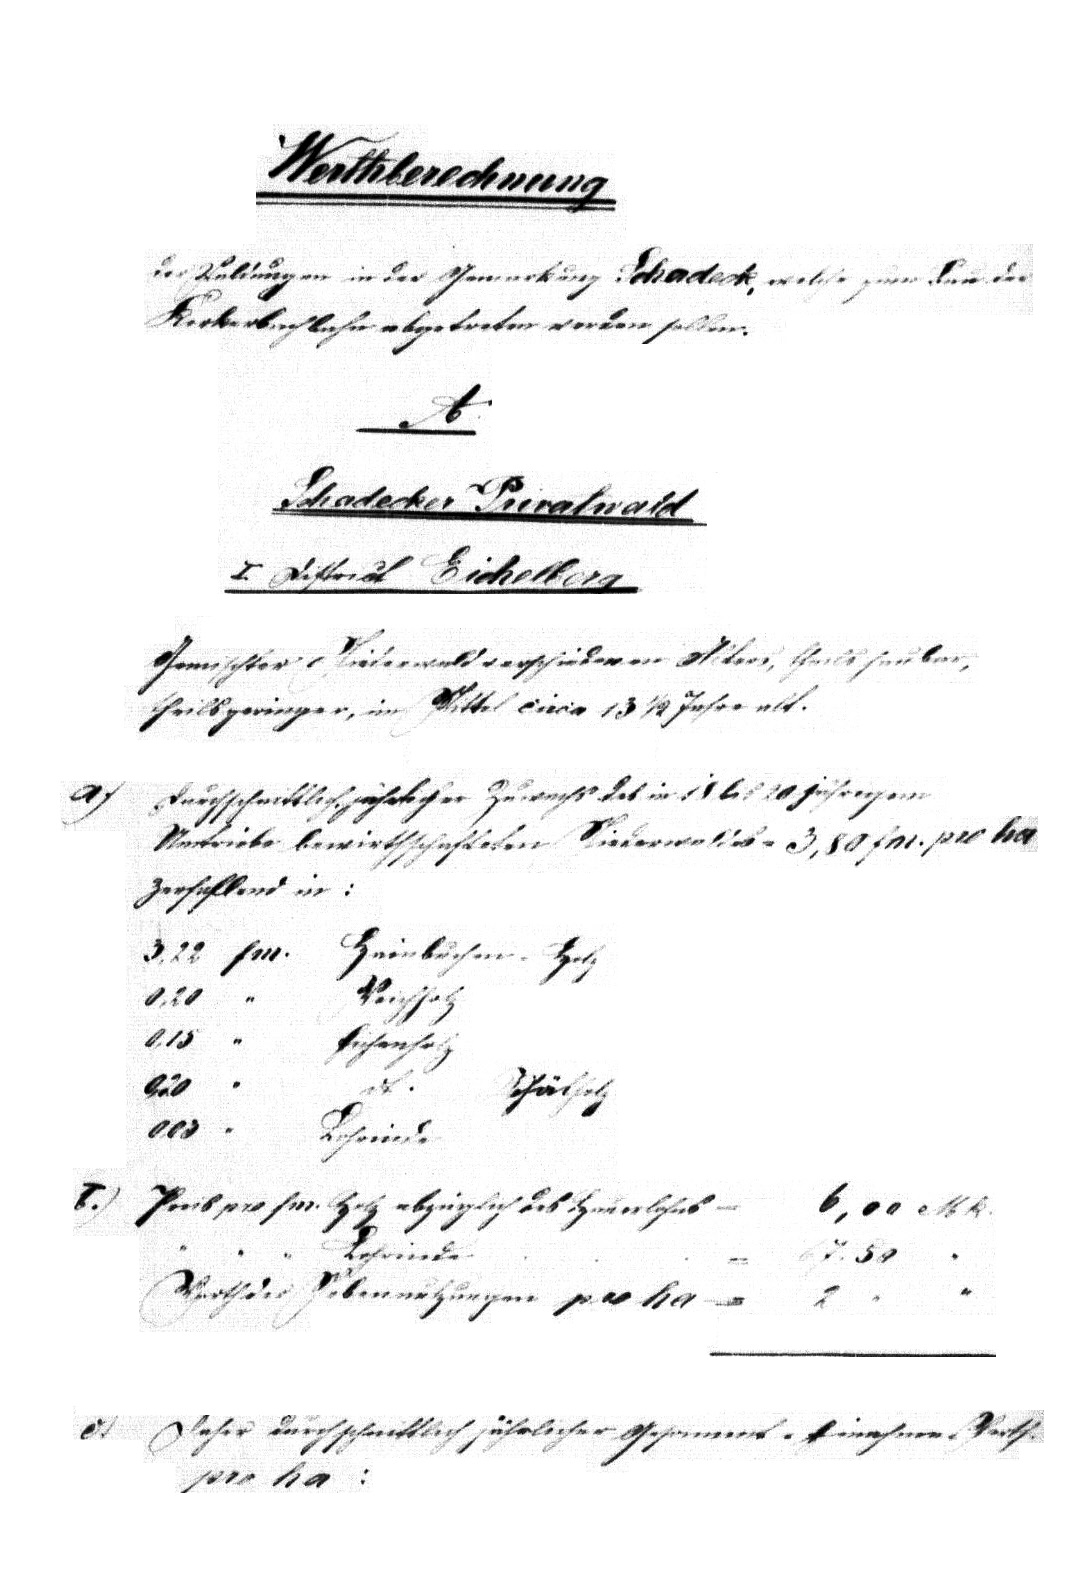 Werthberechnung
der Waldungen in der Gemarkung Schadeck, welche zum Bau der
Kerkerbachbahn abgetreten werden sollen.
A
Schadecker Privatwald
I. Distrikt Eichelberg
Gemischter Niederwald verschiedenen Alters, theils haubar,
theils geringer, im Mittel circa 13 1/2 Jahre alt.
a) Durchschnittlich jährlicher Zuwachs des in 18 bis 20 jährigem
Umtriebe bewirthschafteten Niederwaldes = 3,80 fm. pro ha
zerfallend in:
3,22 fm. Hainbuchen-Holz
0,20 " Weichholz
0,15 " Eichenholz
0,20 " do. Schälholz
0,03 " Lohrinde
b.) Preis pro fm. Holz abzüglich des Hauerlohns = 6,00 Mk.
" " " Lohrinde = 67.50 "
Werth der Nebennutzungen pro ha = 2 " "
c) Daher durchschnittlich jährlicher Gesammt-Einnahme-Werth
pro ha: